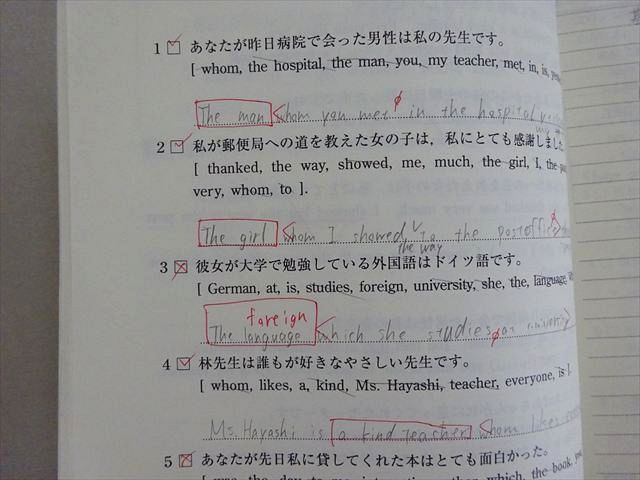 1 あなたが昨日病院で会った男性は私の先生です。
[ whom, the hospital, the man, you, my teacher, met, in, is,
The man whom you met in the hospital
2 私が郵便局への道を教えた女の子は，私にとても感謝しました
[ thanked, the way, showed, me, much, the girl, I,
very, whom, to ].
The girl whom I showed to the postoffice
the way
3 彼女が大学で勉強している外国語はドイツ語です。
[ German, at, is, studies, foreign, university, she, the, language,
foreign
The language which she studies at university
4 林先生は誰もが好きなやさしい先生です。
[ whom, likes, a, kind, Ms. Hayashi, teacher, everyone, is ].
Ms. Hayashi is a kind teacher whom likes
5 あなたが先日私に貸してくれた本はとても面白かった。
which, the book,